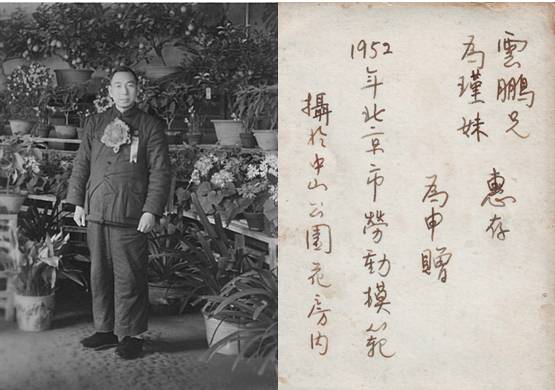 雲鵬兄
為瑾妹 惠存
為申贈
1952年北京市勞動模范
攝於中山公園花房內